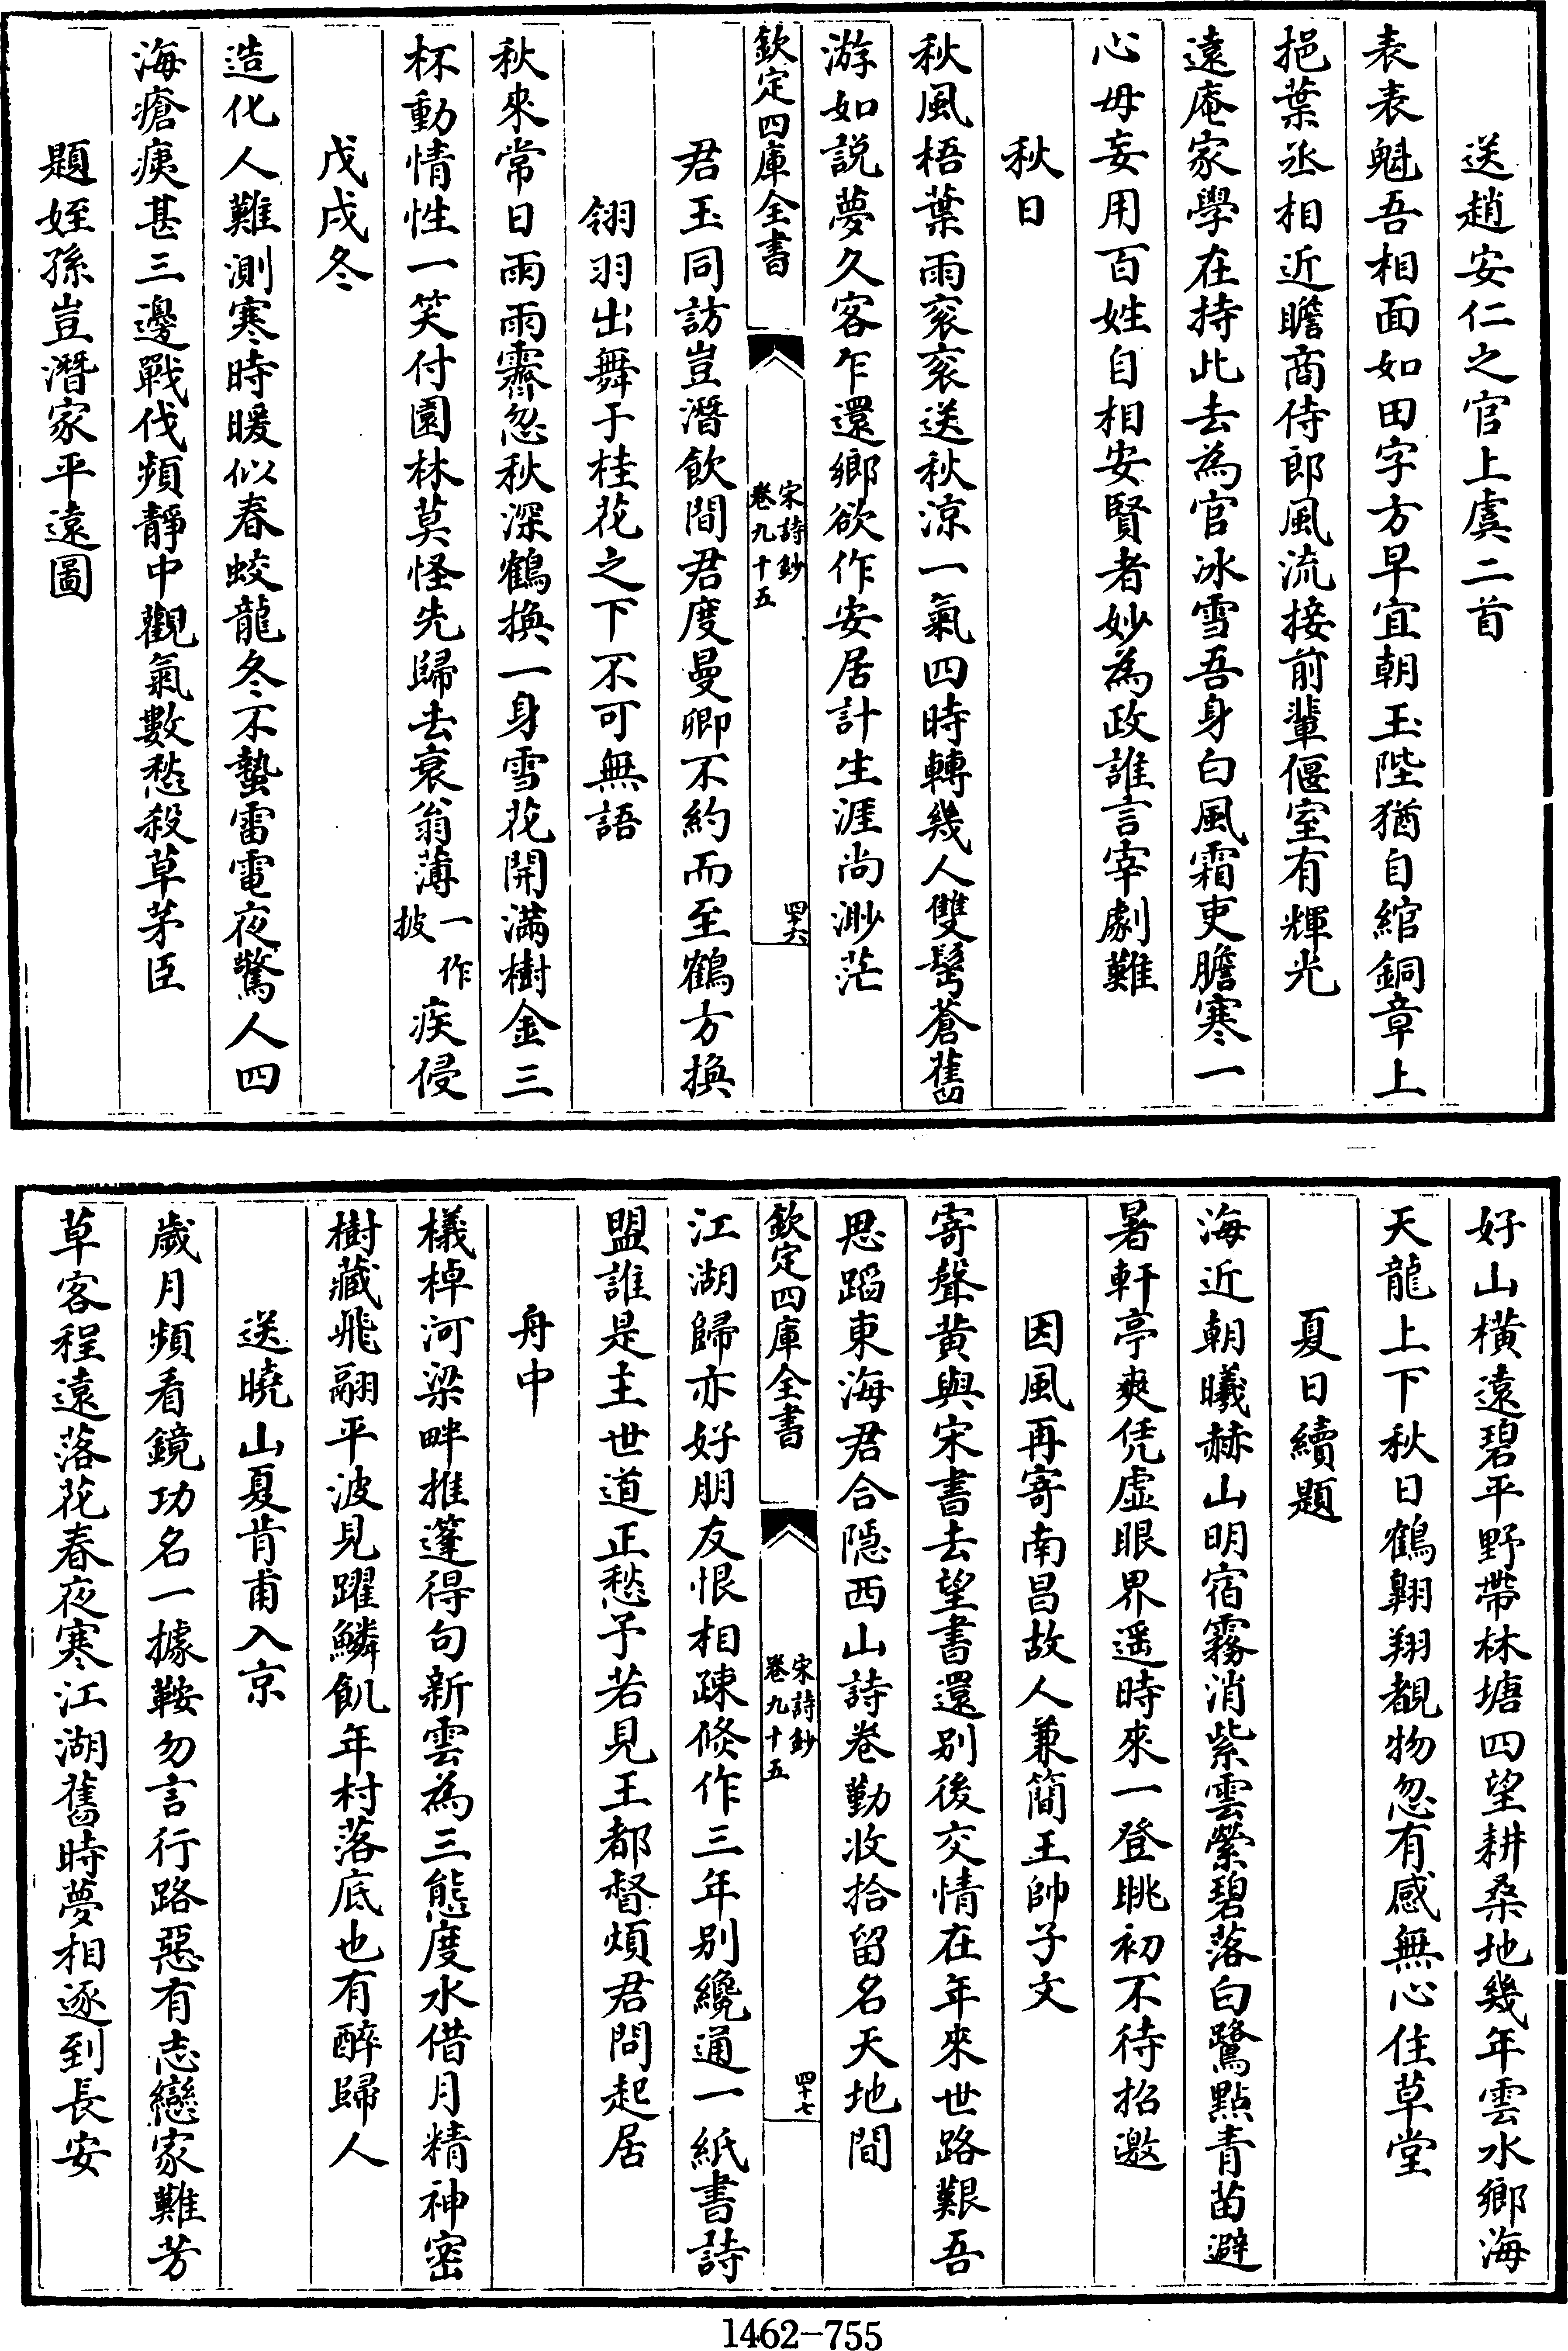 送趙安仁之官上虞二首
表表魁吾相面如田字方早宜朝玉陛猶自綰銅章上
挹葉丞相近瞻商侍郎風流接前輩偃室有輝光
遠庵家學在持此去為官冰雪吾身白風霜吏膽寒一
心毋妄用百姓自相安賢者妙為政誰言宰劇難
秋日
秋風梧葉雨衮衮送秋涼一氣四時轉幾人雙髩蒼舊
游如說夢久客乍還鄉欲作安居計生涯尚渺茫
欽定四庫全書
宋詩鈔
卷九十五
四十六
君玉同訪豈潛飲間君度曼卿不約而至鶴方換
翎羽出舞于桂花之下不可無語
秋來常日雨雨霽忽秋深鶴換一身雪花開滿樹金三
杯動情性一笑付園林莫怪先歸去衰翁薄一作披疾侵
戊戌冬
造化人難測寒時暖似春蛟龍冬不蟄雷電夜驚人四
海瘡痍甚三邊戰伐頻靜中觀氣數愁殺草茅臣
題姪孫豈潛家平遠圖
好山橫遠碧平野帶林塘四望耕桑地幾年雲水鄉海
天龍上下秋日鶴翺翔覩物忽有感無心住草堂
夏日續題
海近朝曦赫山明宿霧消紫雲縈碧落白鷺點青苗避
暑軒亭爽凭虛眼界遥時來一登眺初不待招邀
因風再寄南昌故人兼簡王帥子文
寄聲黃與宋書去望書還别後交情在年來世路艱吾
思蹈東海君合隱西山詩卷勤收拾留名天地間
欽定四庫全書
宋詩鈔
卷九十五
四十七
江湖歸亦好朋友恨相疎倐作三年别纔通一紙書詩
盟誰是主世道正愁予若見王都督煩君問起居
舟中
檥棹河梁畔推篷得句新雲為三態度水借月精神密
樹藏飛翮平波見躍鱗飢年村落底也有醉歸人
送曉山夏肯甫入京
歲月頻看鏡功名一據鞍勿言行路惡有志戀家難芳
草客程遠落花春夜寒江湖舊時夢相逐到長安
1462-755